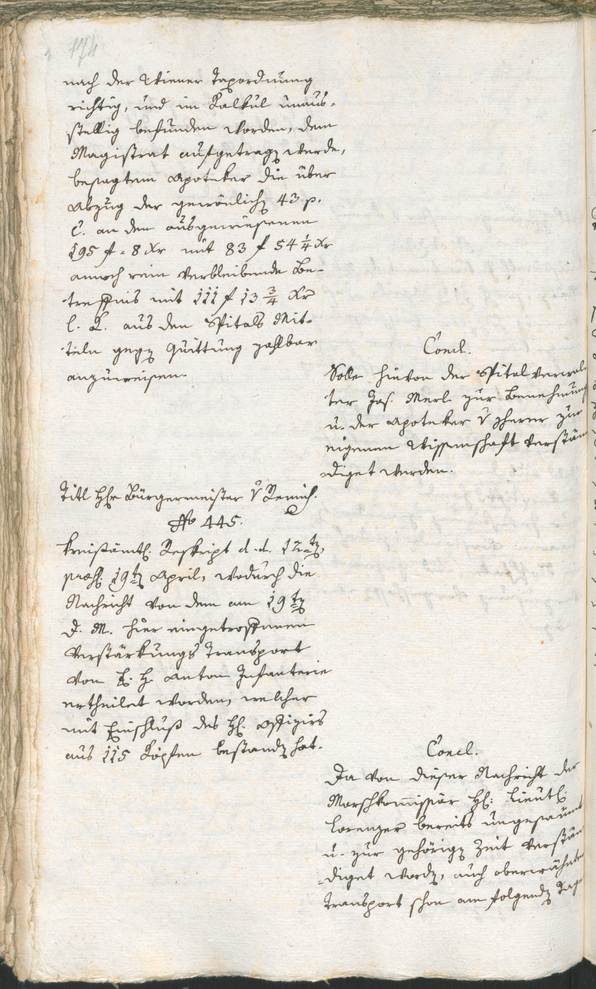 174
nach der Wiener Taxordnung
richtig, und im Kalkul unaus-
stellig befunden worden, dem
Magistrat aufgetrag werde,
besagtem Apoteker die über
Abzug der gewönlich 43 p.
C. an den ausgewiesenen
195 f - 8 Xr mit 83 f 54 1/4 Xr
annoch rein verbleibende Be-
treffnis mit 111 f 13 3/4 Xr
aus den Spitals Mit-
teln gegen Quittung zahlbar
anzuweisen.
Concl.
Solle hievon der Spitalverwal-
ter Jos. Merl zur Benehmung
u. der Apoteker v zur
eigenen Wissenschaft verstän-
diget werden.
Titl H Bürgermeister v
No 445.
Kreisämtl. Reskript d. d. 12
praes. 19 April, wodurch die
Nachricht von dem am 19
d. M. hier eingetroffenen
Verstärkungs Transport
von E. H. Anton Infanterie
ertheilet worden, welcher
mit Einschluß des H. Offiziers
aus 115 Köpfen bestand hat.
Concl.
Da von dieser Nachricht der
Marschkommissär H: Lieut:
Lorenzer bereits ungesäumt
u. zur gehörig Zeit verstän-
diget word, auch oberwähnter
Transport schon am folgend Tage